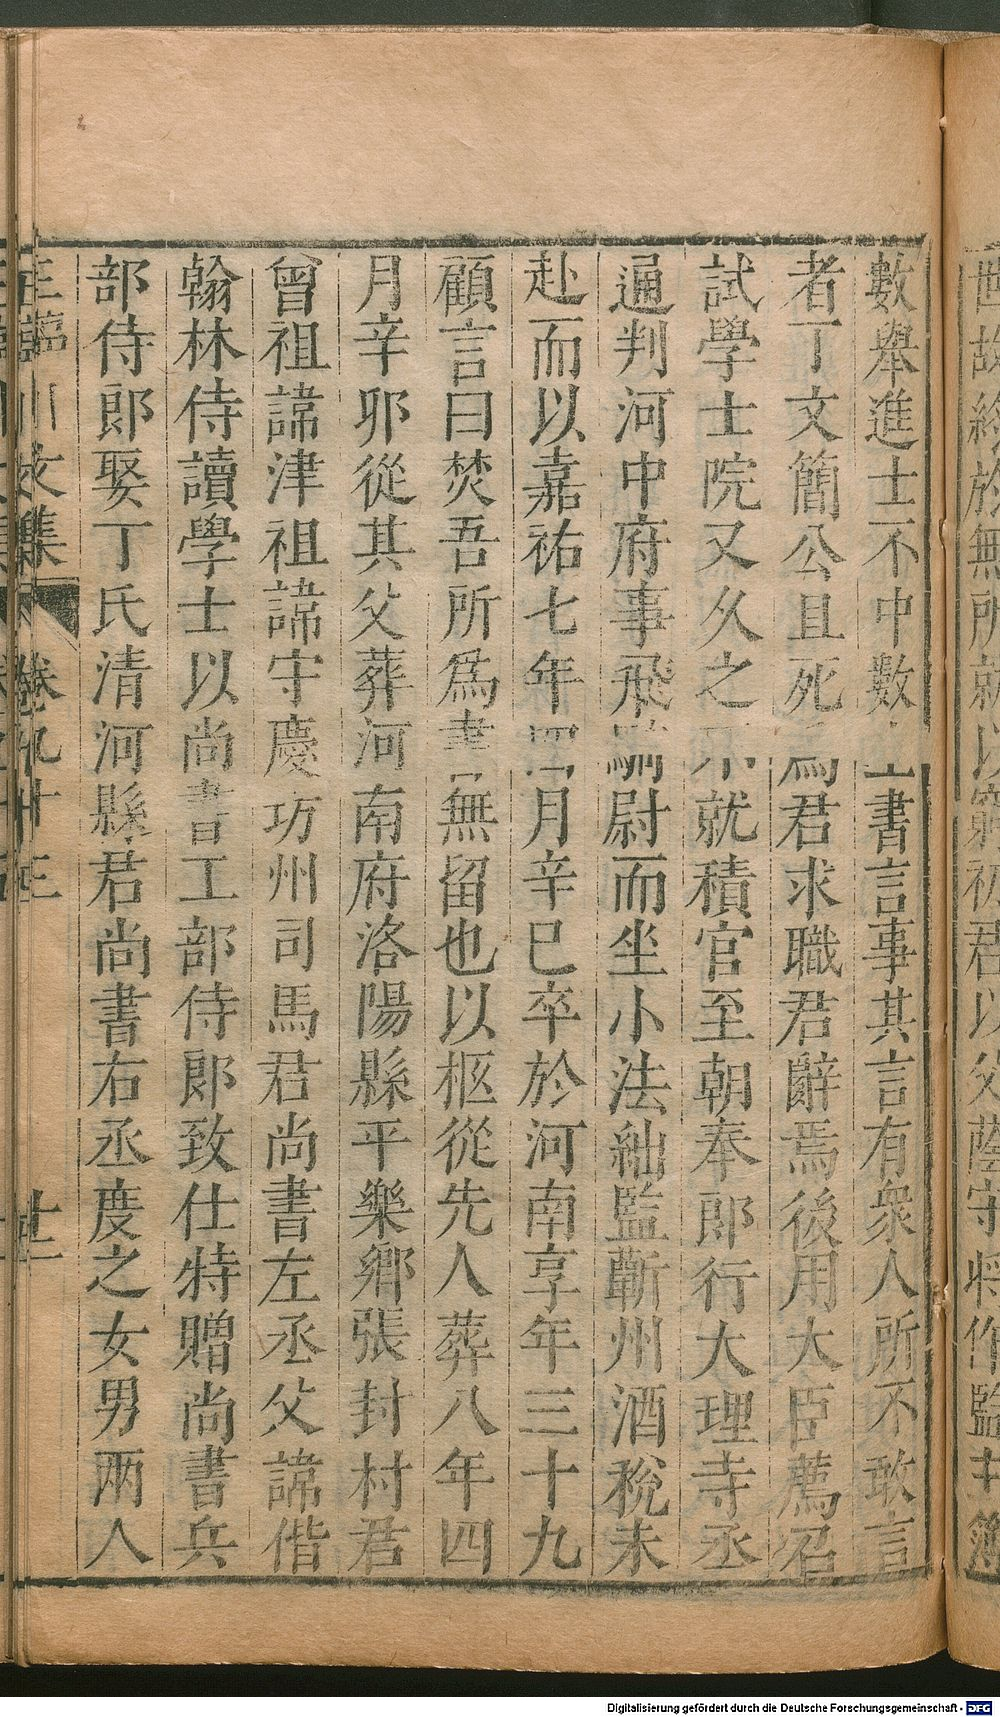 世故終於無所就以窮初君以父蔭守將作監主簿
數舉進士不中數上書言事其言有衆人所不敢言
者丁文簡公且死爲君求職君辭焉後用大臣薦召
試學士院又久之不就積官至朝奉郎行大理寺丞
通判河中府事飛騎尉而坐小法絀監蘄州酒稅未
赴而以嘉祐七年四月辛巳卒於河南享年三十九
顧言曰焚吾所爲書無留也以柩從先人葬八年四
月辛卯從其父葬河南府洛陽縣平樂鄉張封村君
曾祖諱津祖諱守慶坊州司馬君尚書左丞父諱偕
翰林侍讀學士以尚書工部侍郎致仕特贈尚書兵
部侍郎娶丁氏清河縣君尚書右丞度之女男兩人
王臨川文集 卷九十三
Digitalisierung gefördert durch die Deutsche Forschungsgemeinschaft - DFG